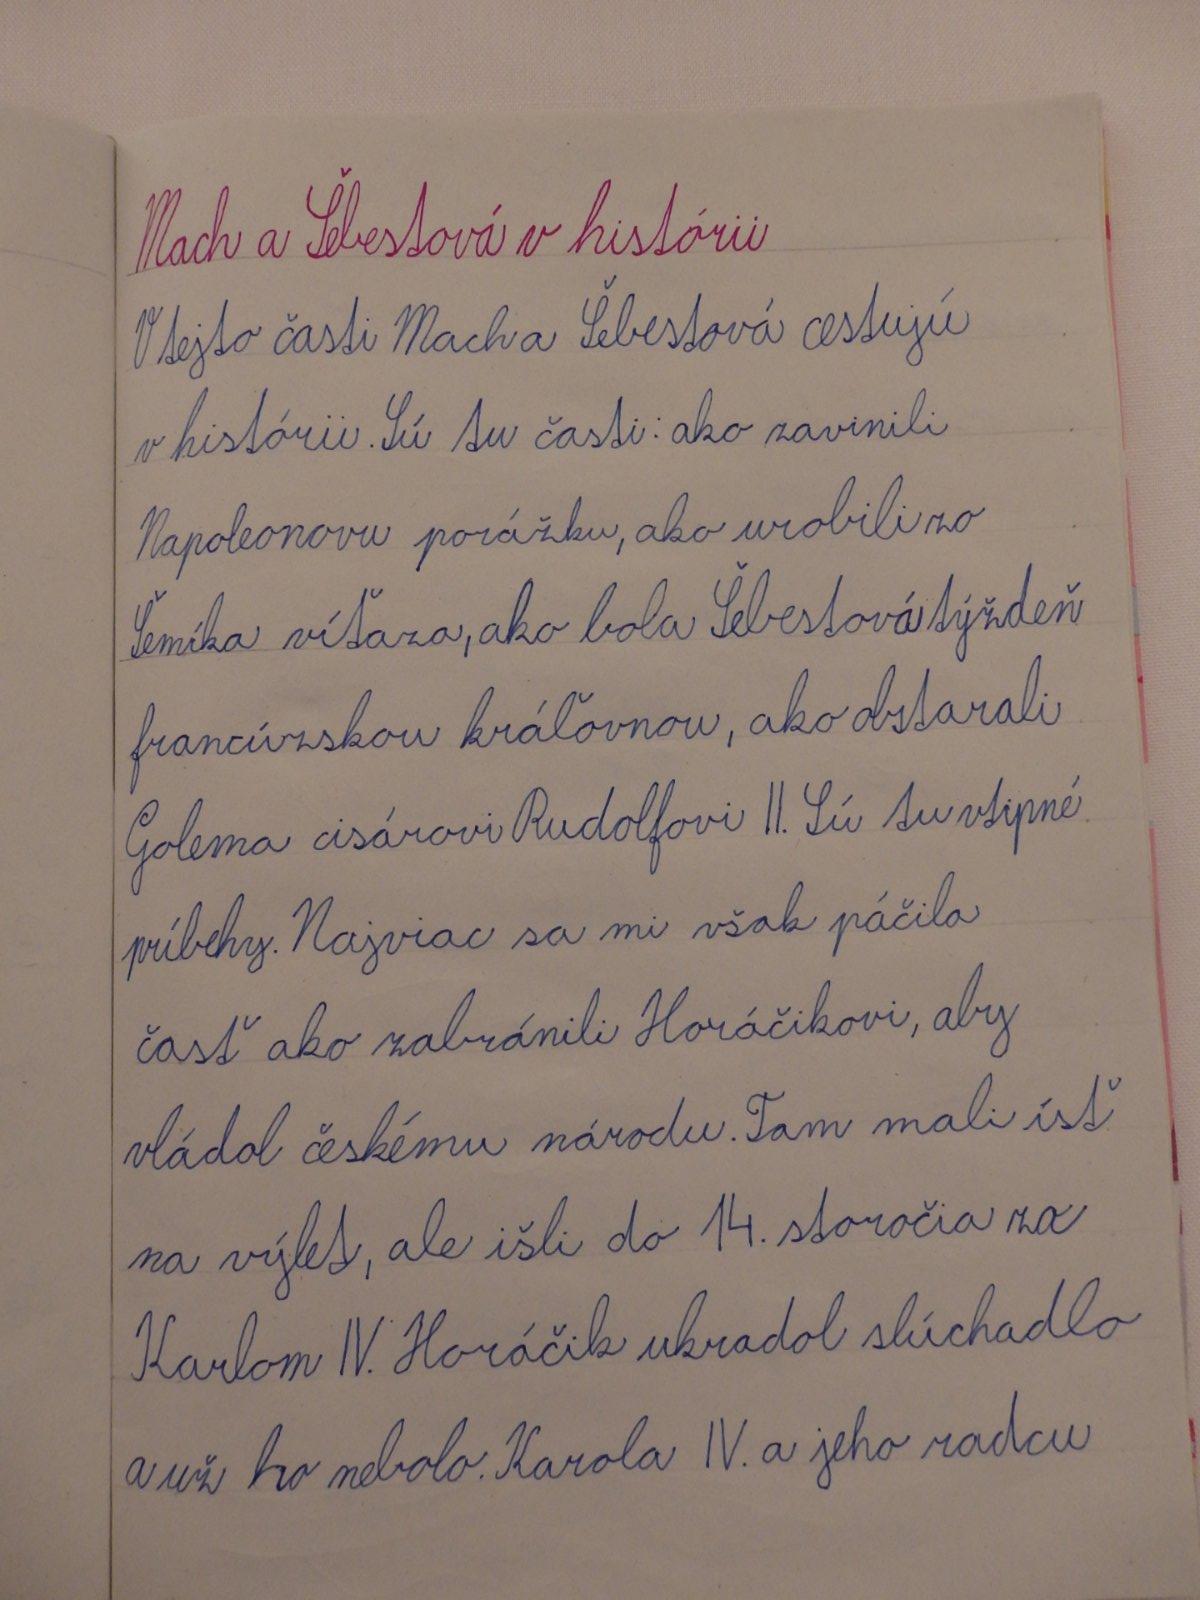 Mach a Šebestová v histórii
V tejto časti Mach a Šebestová cestujú
v histórii. Sú tu časti: ako zavinili
Napoleonovu porážku, ako urobili zo
Šemíka víťaza, ako bola Šebestová týždeň
francúzskou kráľovnou, ako obstarali
Golema cisárovi Rudolfovi II. Sú tu vtipné
príbehy. Najviac sa mi však páčila
časť ako zabránili Horáčikovi, aby
vládol českému národu. Tam mali ísť
na výlet, ale išli do 14. storočia za
Karlom IV. Horáčik ukradol slúchadlo
a už ho nebolo. Karola IV. a jeho radcu